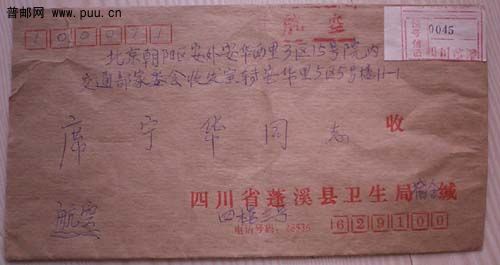 普邮网
www.puu.cn
100011
航空
0045
北京朝阳区安外安华西里3区15号院内
交通部家委会收发室转安华里5区5号楼11-1
席宁华同志 收
四川省蓬溪县卫生局 缄
四楼三号
航空
电话号码:
629100